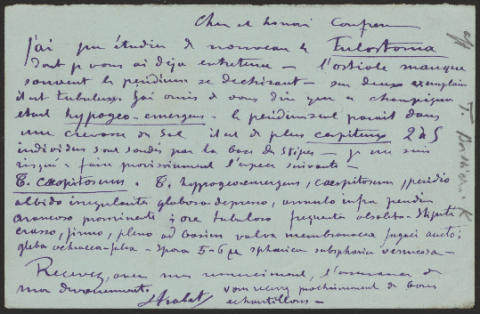 Cher et honoré Confrère
J'ai pu étudier de nouveau le Tulostoma
dont je vous ai déjà entretenu — l'ostiole manque
souvent le péridium se déchirant — sur deux exemplaires
il est tubuleux. J'ai omis de vous dire que ce champignon
étant hypogeo-emergens — le péridium seul parait dans
une crevasse du sol il est de plus cespiteux 2 à 5
individus sont soudés par la base du stipe — je me suis
risqué à faire provisoirement l'espèce suivante —
T. caespitosum. T. hypogeo emergens, caespitosum, peridio
albido irregulariter globoso depresso, annulo infra peridium
prominente; ore tubuloso frequenter obsoleto — Stipite
crasso, firmo, pleno ad basim volva membranacea fugaci aucto;
gleba ochracea-fulva — spora 5-6 µ sphaerica subsphaerica verrucosa —
Recevez, avec mes remerciements, l'assurance de
mon dévouement. vous recevrez prochainement de bons
échantillons —